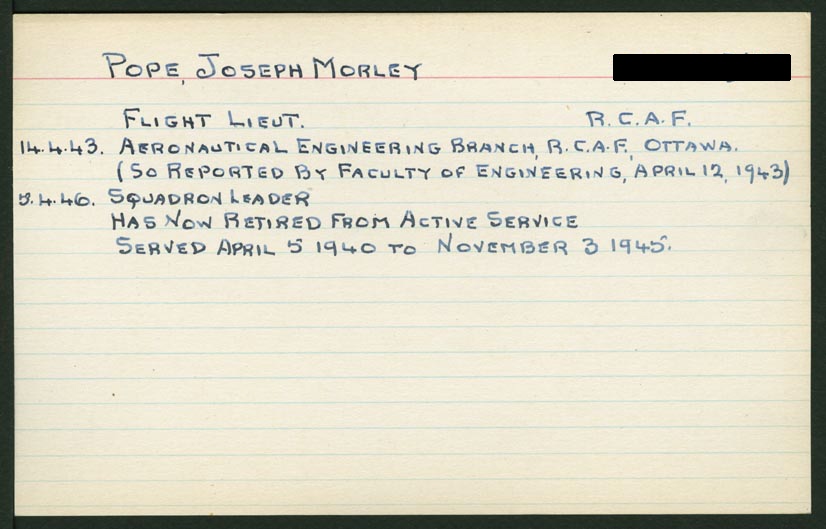 Pope, Joseph Morley
Flight Lieut. R.C.A.F.
14.4.43. Aeronautical Engineering Branch, R.C.A.F., Ottawa.
(So Reported By Faculty of Engineering, April 12, 1943)
5.4.46. Squadron Leader
Has Now Retired From Active Service
Served April 5 1940 to November 3 1945.